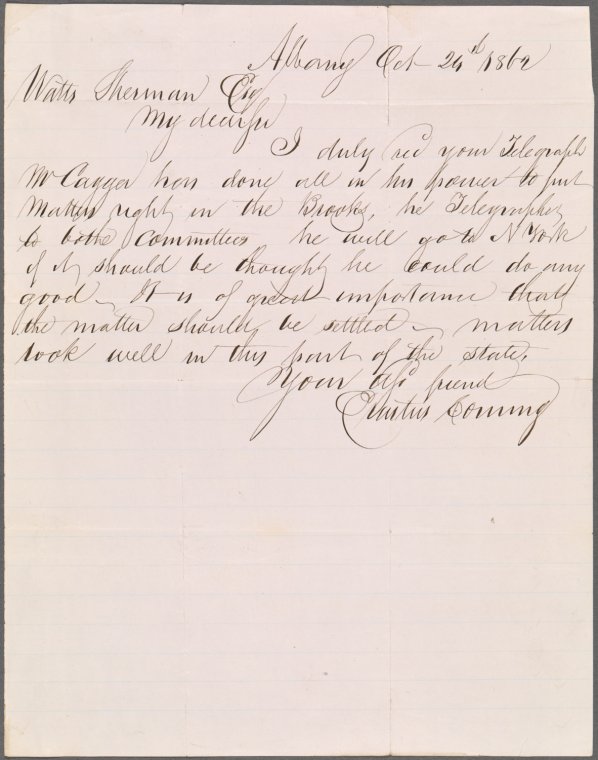 Albany Oct 24th 1862
Watts Sherman Esq
My dear sir
I duly recd your Telegraph
Mr Cagger has done all in his power to put
Matters right in the Brooks, he Telegraphed
to both Committees he will go to N York
if it should be thought he could do any
good - It is of great importance that
the matter should be settled - matters
look well in this part of the state,
Your affc friend
Erastus Corning